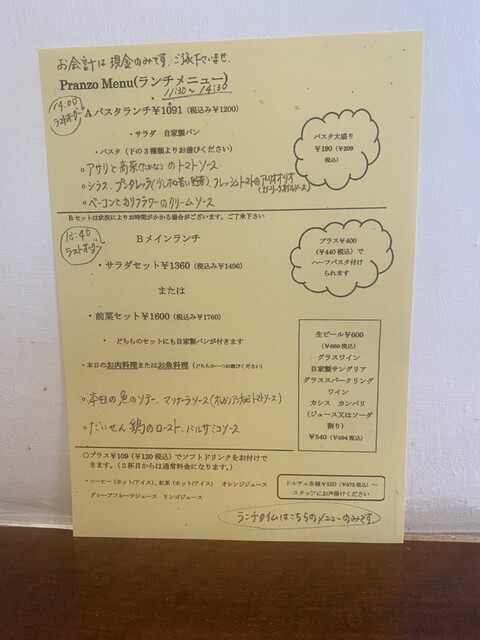 お会計は現金のみです。ご了承下さいませ。
Pranzo Menu(ランチメニュー)
11:30～14:30
14:00
ラストオーダー
A パスタランチ￥1091（税込み￥1200）
・サラダ　自家製パン
・パスタ（下の３種類よりお選びください）
○アサリと高菜(たかな)のトマトソース
○シラス、プンタレッラ(リレドの苦い野菜)、フレッシュトマトのアーリオオーリオ
(ガーリックオイルソース)
○ベーコンとカリフラワーのクリームソース
パスタ大盛り
￥190（￥209
税込）
Bセットは状況によりお時間がかかる場合がございます。ご了承下さい
13:40
ラストオーダー
B メインランチ
・サラダセット￥1360（税込み￥1496）
または
・前菜セット￥1600（税込み￥1760）
・　どちらのセットにも自家製パンが付きます
・本日のお肉料理またはお魚料理（どちらか一つお選びください）
○本日の魚のソテー、マリナーラソース(オレガノアンチョビトマトソース)
○だいせん鶏のロースト、バルサミコソース
プラス￥400
（￥440 税込）で
ハーフパスタ付け
られます
生ビール￥600
（￥660 税込）
グラスワイン
自家製サングリア
グラススパークリング
ワイン
カシス　カンパリ
（ジュース又はソーダ
割り）
￥540（￥594 税込）
○プラス￥109（￥120 税込）でソフトドリンクをお付けで
きます。（２杯目からは通常料金になります。）
・コーヒー（ホット/アイス）、紅茶（ホット/アイス）　オレンジジュース
グレープフルーツジュース　リンゴジュース
ドルチェ各種￥520（￥572 税込）～
スタッフにお声掛けください
ランチタイムはこちらのメニューのみです。